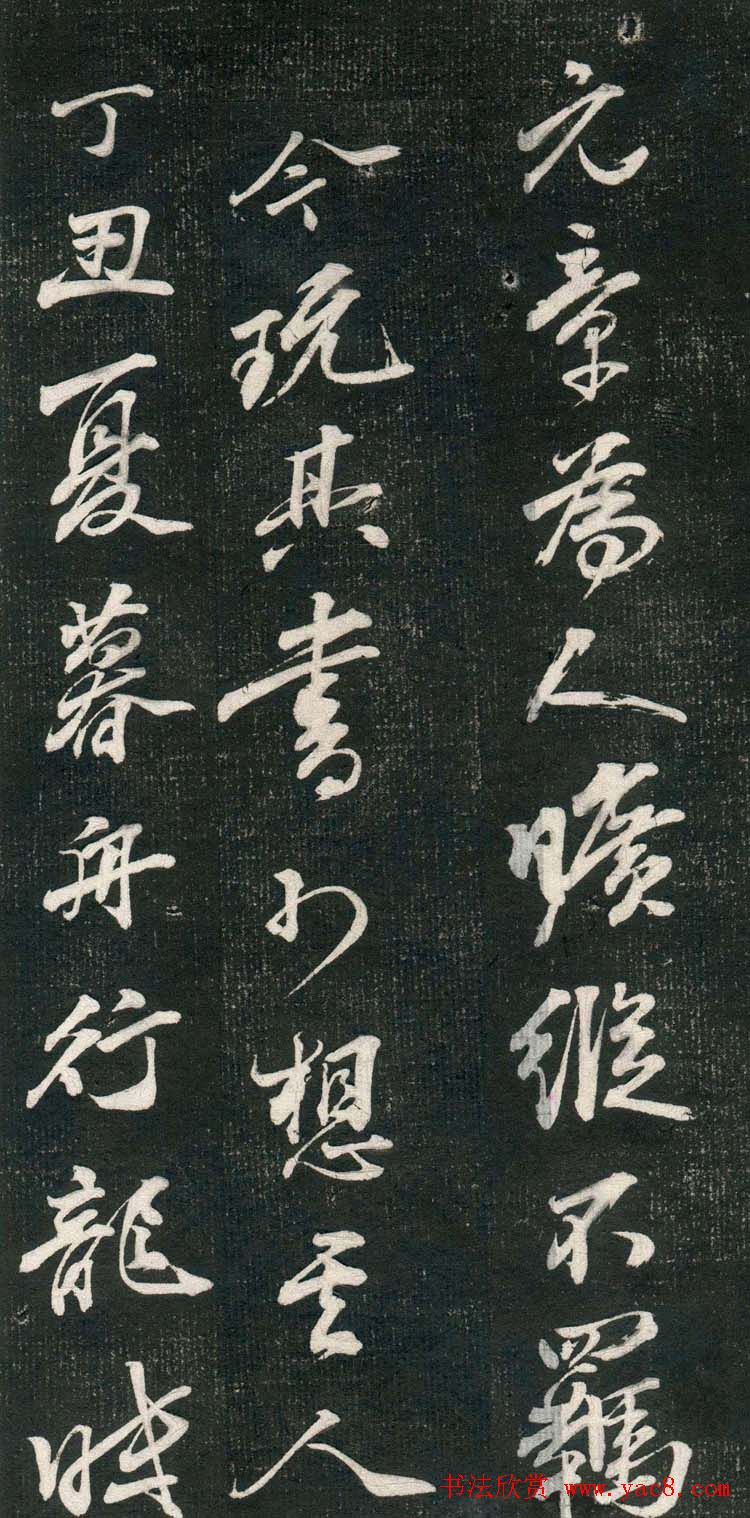 元章為人曠縱不羈
今玩其書可想其人
丁丑夏暮舟行龍
书法欣赏 www.yac8.com